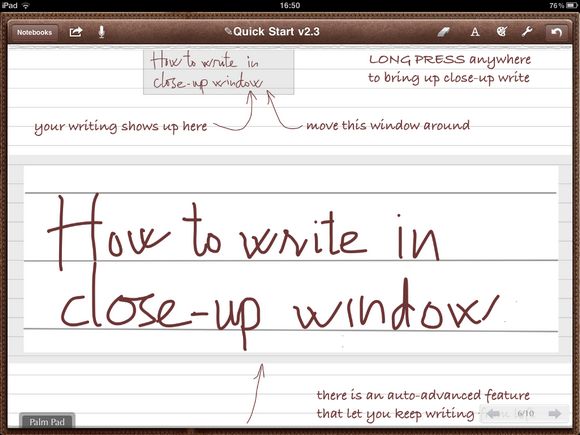 iPad
16:50
76%
Notebooks
Quick Start v2.3
A
How to write in
close-up window
LONG PRESS anywhere
to bring up close-up write
your writing shows up here
move this window around
How to write in
close-up window
there is an auto-advanced feature
that let you keep writing
6/10
Palm Pad